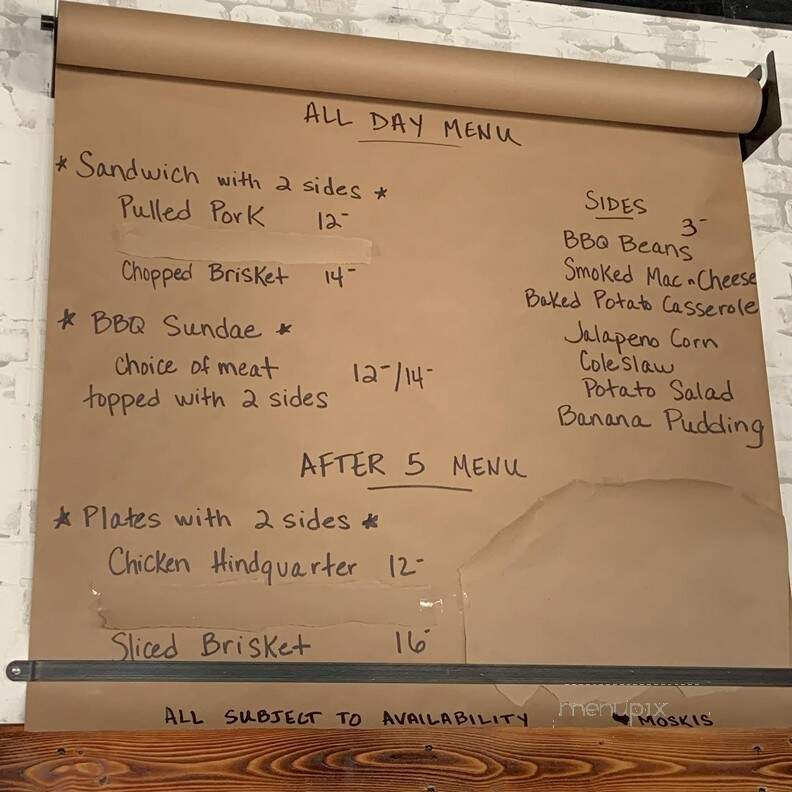 ALL DAY MENU
* Sandwich with 2 sides *
Pulled Pork 12-
Chopped Brisket 14-
* BBQ Sundae *
choice of meat 12-/14-
topped with 2 sides
SIDES
3-
BBQ Beans
Smoked Mac n Cheese
Baked Potato Casserole
Jalapeno Corn
Coleslaw
Potato Salad
Banana Pudding
AFTER 5 MENU
* Plates with 2 sides *
Chicken Hindquarter 12-
Sliced Brisket 16-
ALL SUBJECT TO AVAILABILITY ♥ MOSKIS
menupix